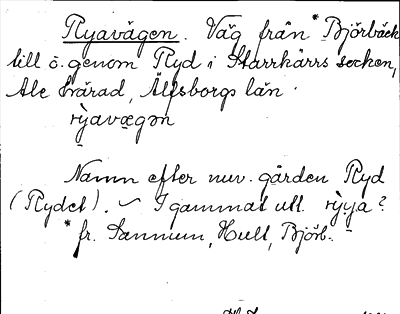 Ryavägen. Väg från *Björbäck
till ö. genom Ryd i Starrkärrs socken,
Ale härad, Älfsborgs län.
rỳavægən
Namn efter nuv. gården Ryd
(Rydet). ~ I gammal utt. rỳ.ya?
*fr. Sannum, Hult, Björb.